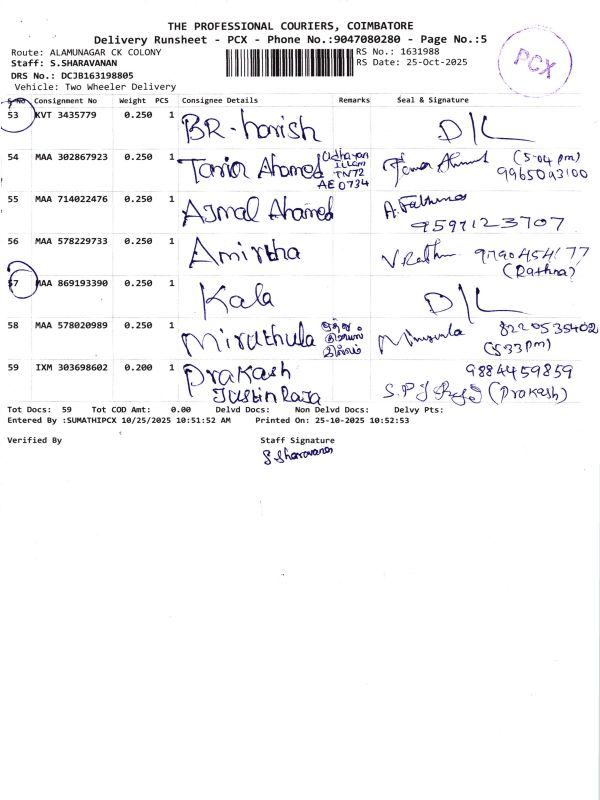 THE PROFESSIONAL COURIERS, COIMBATORE
Delivery Runsheet - PCX - Phone No.:9047080280 - Page No.:5
Route: ALAMUNAGAR CK COLONY RS No.: 1631988
Staff: S.SHARAVANAN RS Date: 25-Oct-2025
DRS No.: DCJB163198805
Vehicle: Two Wheeler Delivery
PCX
S No Consignment No Weight PCS Consignee Details Remarks Seal & Signature
53 KVT 3435779 0.250 1 BR-harish D/L
54 MAA 302867923 0.250 1 Tariq Ahamed Udhayan Illam TN72 AE0734 (5:04 pm) 9965093100
55 MAA 714022476 0.250 1 AJmal Ahamed A. Fathima 9597123707
56 MAA 578229733 0.250 1 Amirtha V. Rathna 9790454177 (Rathna)
57 MAA 869193390 0.250 1 Kala D/L
58 MAA 578020989 0.250 1 Miruthula 8220535402 (5:33 pm)
59 IXM 303698602 0.200 1 Prakash Justin Raja 9884459859 S.P.J (Prakash)
Tot Docs: 59 Tot COD Amt: 0.00 Delvd Docs: Non Delvd Docs: Delvy Pts:
Entered By :SUMATHIPCX 10/25/2025 10:51:52 AM Printed On: 25-10-2025 10:52:53
Verified By Staff Signature
S. Sharavanan